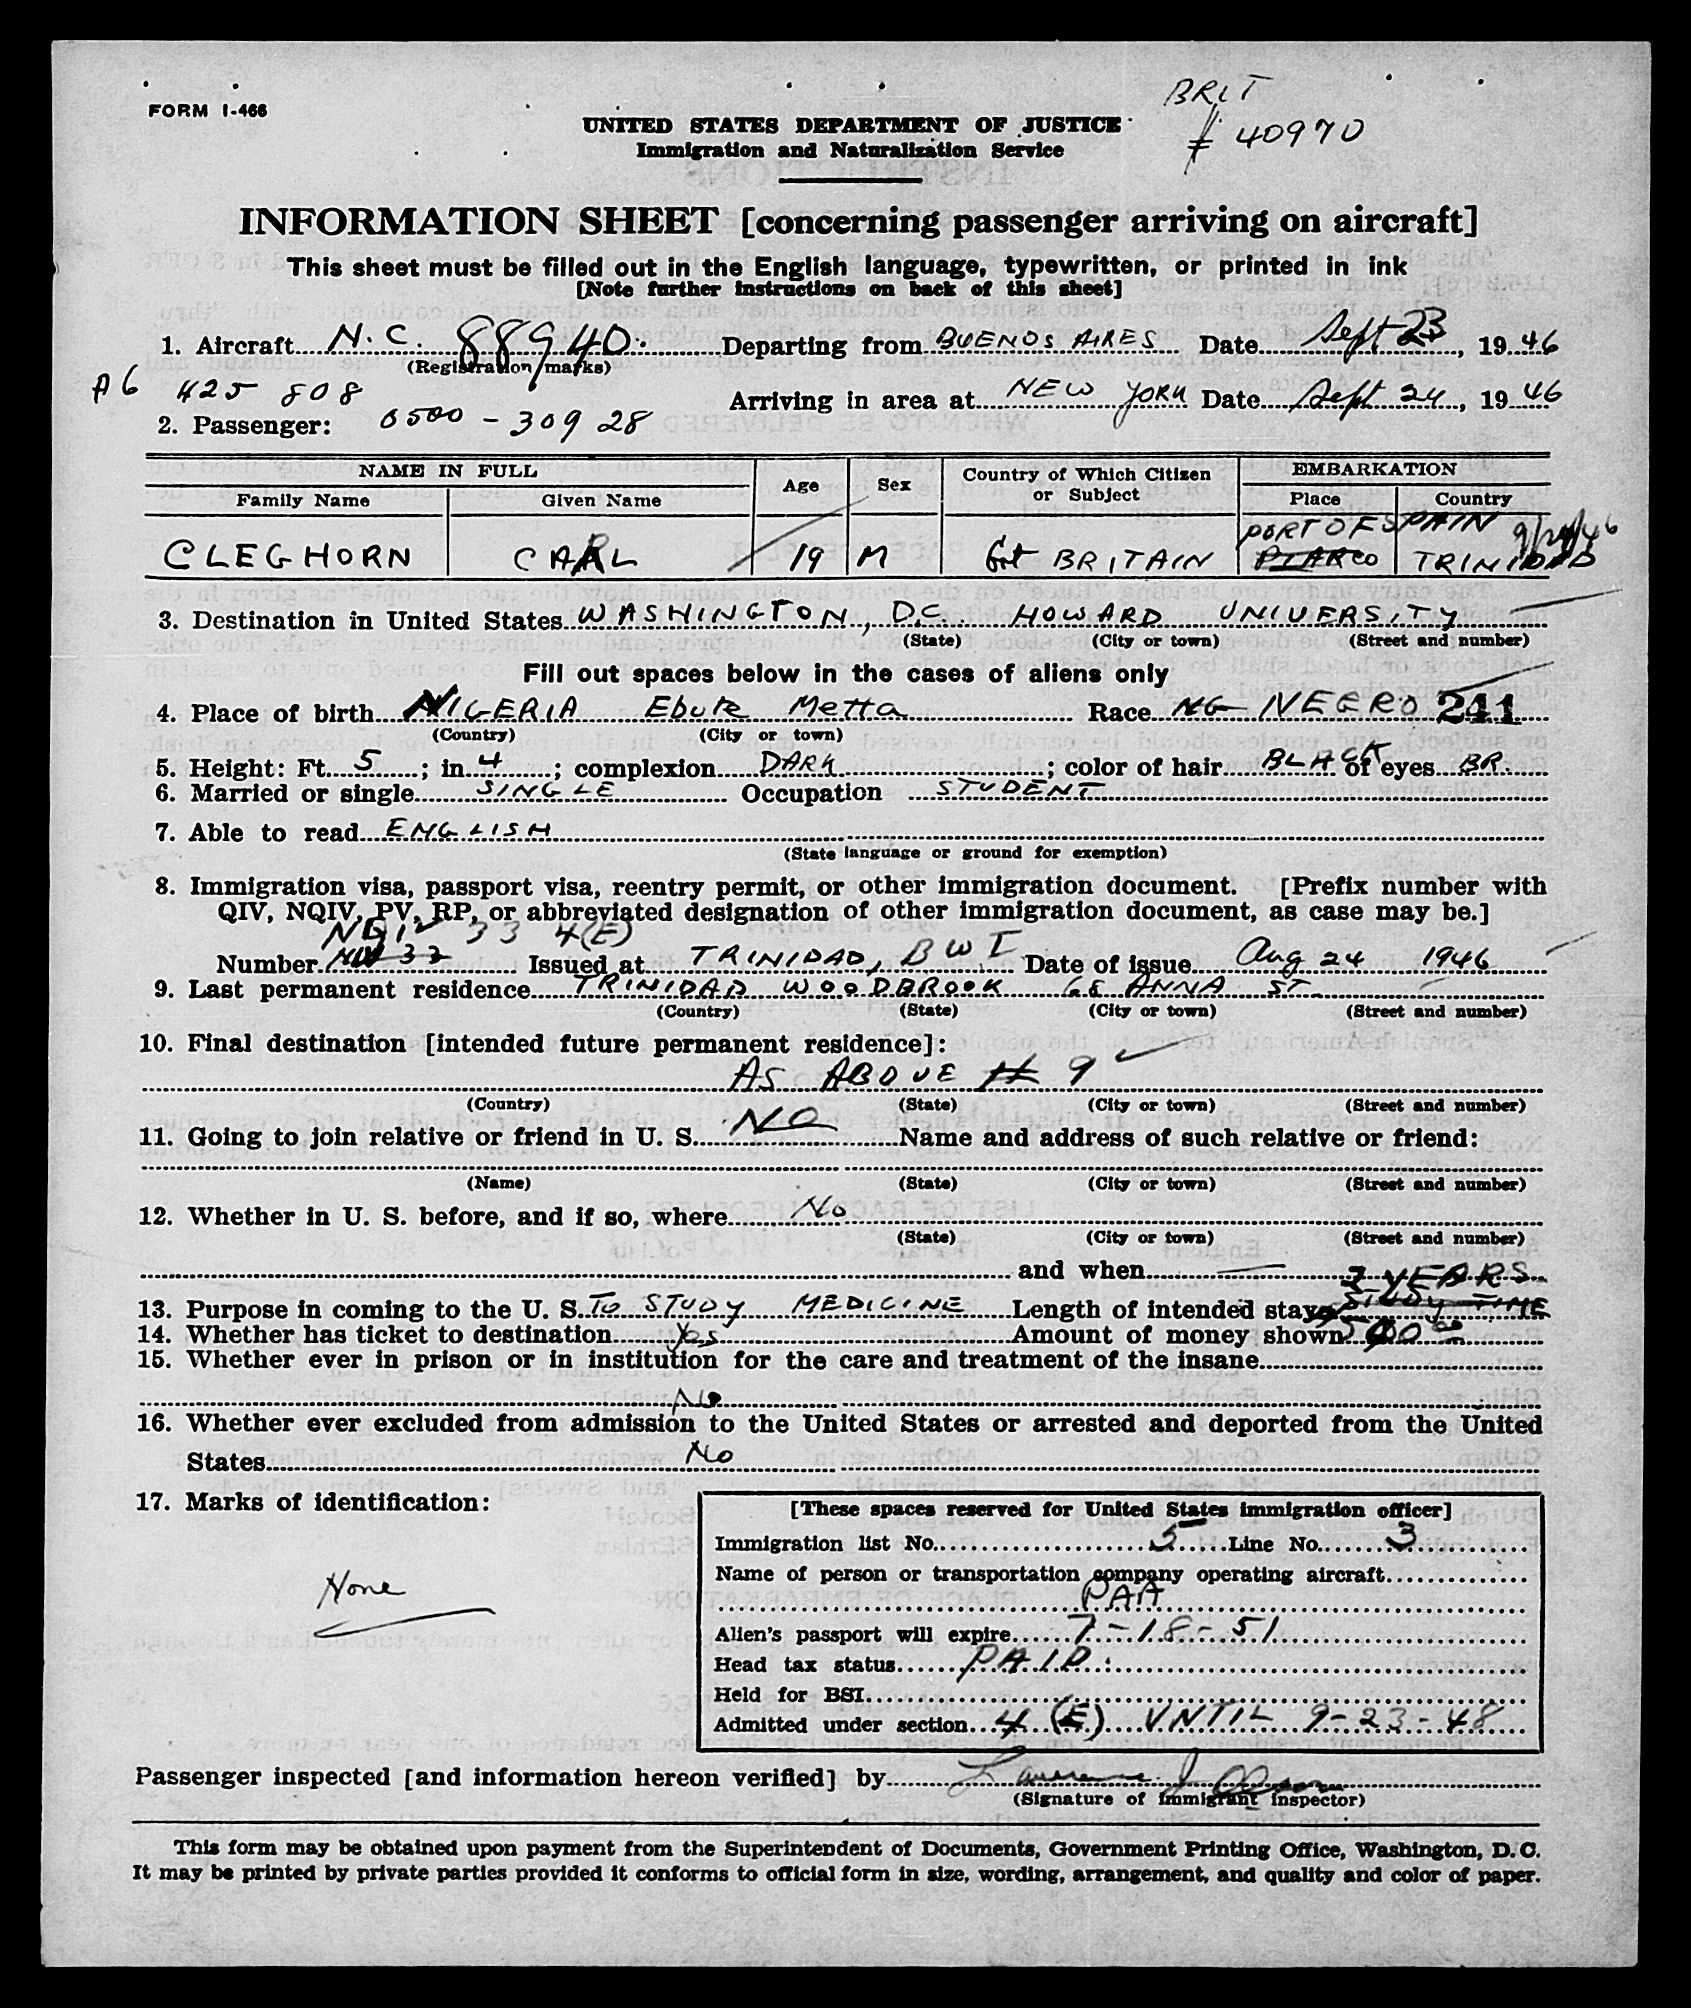 FORM I-466
BRIT
# 40970
UNITED STATES DEPARTMENT OF JUSTICE
Immigration and Naturalization Service
INFORMATION SHEET [concerning passenger arriving on aircraft]
This sheet must be filled out in the English language, typewritten, or printed in ink
[Note further instructions on back of this sheet]
1. Aircraft N.C. 88940. Departing from BUENOS AIRES Date Sept 23, 19 46
(Registration marks)
A6 425 808
Arriving in area at NEW YORK Date Sept 24, 19 46
2. Passenger: 0500 - 30928
NAME IN FULL Age Sex Country of Which Citizen or Subject EMBARKATION
Family Name Given Name Place Country
PORT OF SPAIN 9/24/46
CLEGHORN CARL 19 M Gt BRITAIN PIARCO TRINIDAD
3. Destination in United States WASHINGTON, D.C. HOWARD UNIVERSITY
(State) (City or town) (Street and number)
Fill out spaces below in the cases of aliens only
4. Place of birth NIGERIA Ebute Metta Race NG NEGRO 241
(Country) (City or town)
5. Height: Ft. 5; in. 4; complexion DARK; color of hair BLACK of eyes BR.
6. Married or single SINGLE Occupation STUDENT
7. Able to read ENGLISH
(State language or ground for exemption)
8. Immigration visa, passport visa, reentry permit, or other immigration document. [Prefix number with
QIV, NQIV, PV, RP, or abbreviated designation of other immigration document, as case may be.]
NQIV 33 4(E)
Number 33 Issued at TRINIDAD, BWI Date of issue Aug 24 1946
9. Last permanent residence TRINIDAD WOODBROOK 68 ANNA ST.
(Country) (State) (City or town) (Street and number)
10. Final destination [intended future permanent residence]:
AS ABOVE # 9
(Country) (State) (City or town) (Street and number)
11. Going to join relative or friend in U. S. NO Name and address of such relative or friend:
(Name) (State) (City or town) (Street and number)
12. Whether in U. S. before, and if so, where No
(State) (City or town) (Street and number)
and when
2 YEARS
13. Purpose in coming to the U. S. To STUDY MEDICINE Length of intended stay STUDY TIME
14. Whether has ticket to destination Yes Amount of money shown
15. Whether ever in prison or in institution for the care and treatment of the insane
No
16. Whether ever excluded from admission to the United States or arrested and deported from the United
States No
17. Marks of identification:
None
[These spaces reserved for United States immigration officer]
Immigration list No. 5 Line No. 3
Name of person or transportation company operating aircraft
PAA
Alien's passport will expire 7-18-51
Head tax status PAID.
Held for BSI
Admitted under section 4 (E) UNTIL 9-23-48
Passenger inspected [and information hereon verified] by Lawrence J
(Signature of immigrant inspector)
This form may be obtained upon payment from the Superintendent of Documents, Government Printing Office, Washington, D. C.
It may be printed by private parties provided it conforms to official form in size, wording, arrangement, and quality and color of paper.